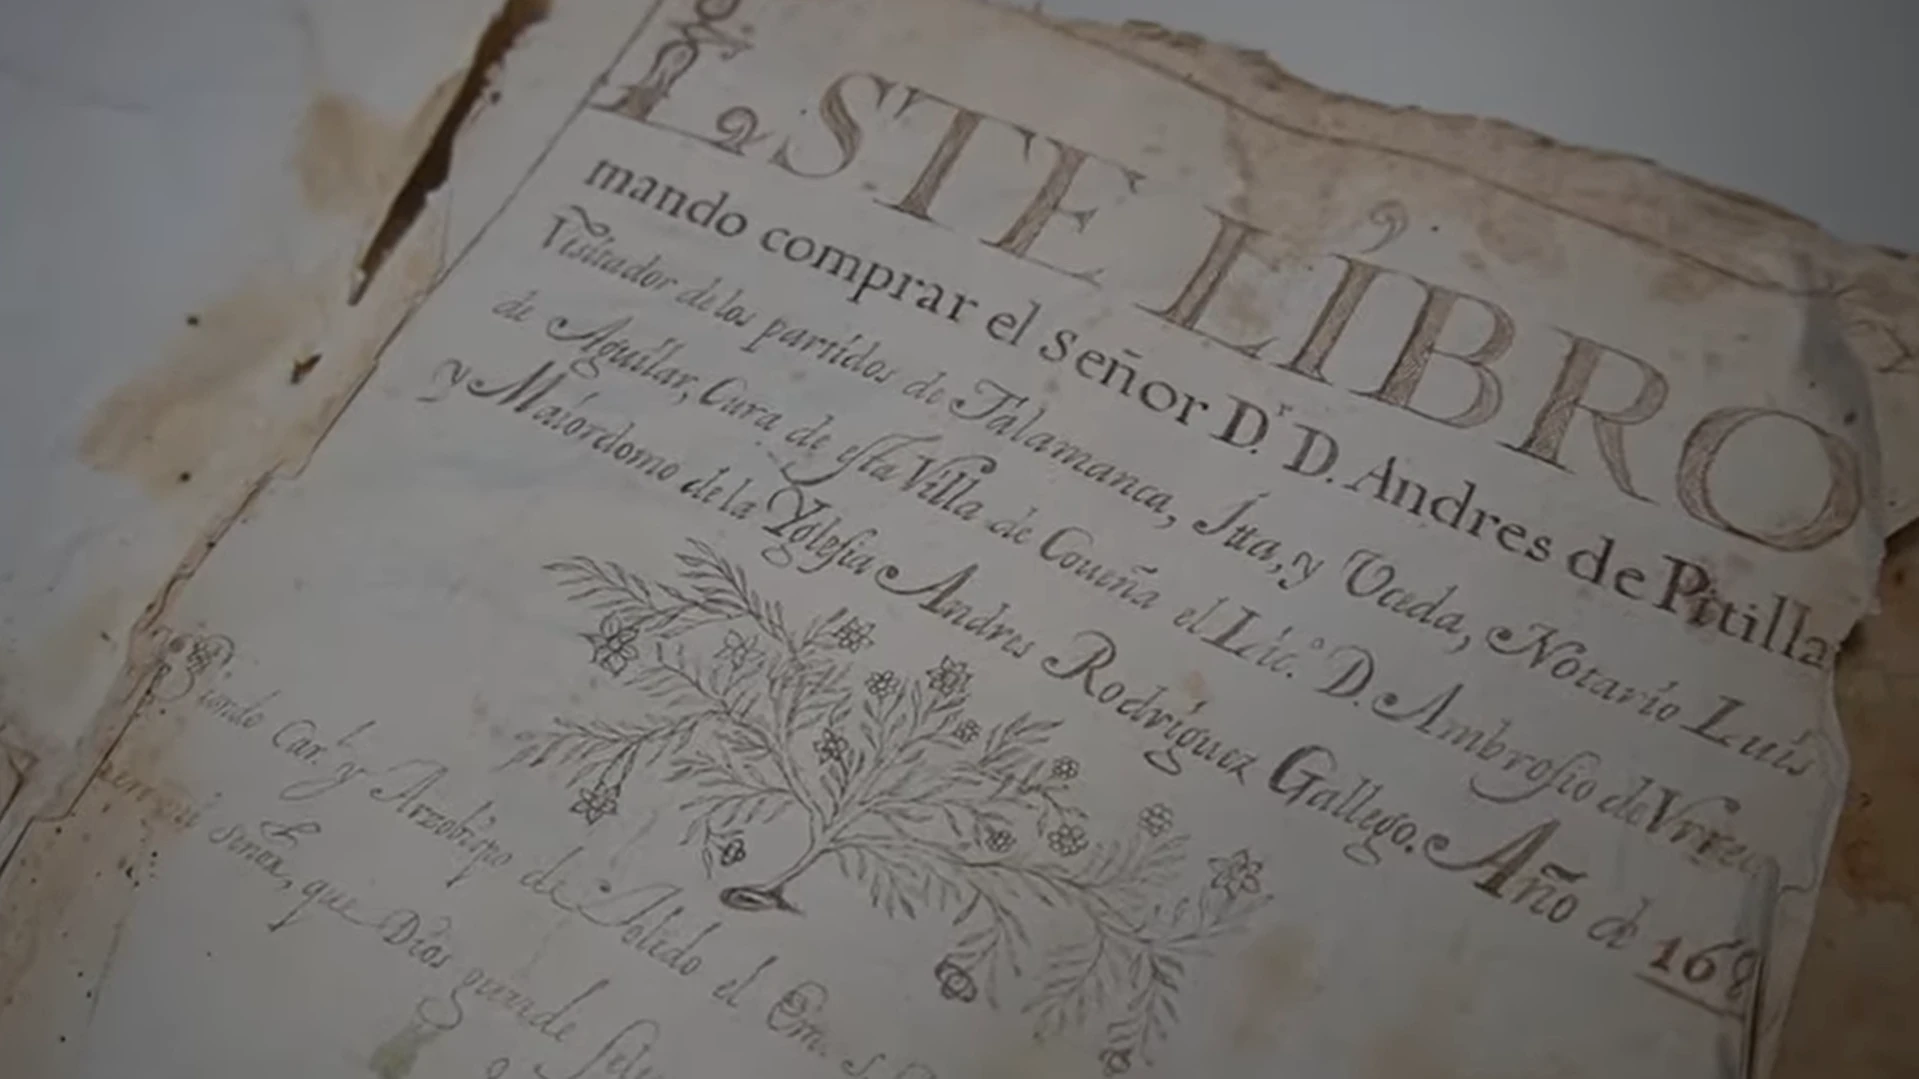 ESTE LIBRO
mando comprar el Señor D.r D. Andres de Pitilla
Visitador de los partidos de Talamanca, Ita, y Vceda, Notario Luis
de Aguilar, Cura de esta Villa de Coueña el Lic.o D. Ambrosio de Vrrea
y Maiordomo de la Yglesia Andres Rodriguez Gallego. Año de 168
Siendo Car. y Arzobispo de Toledo el Em. S.
señor, que Dios guarde